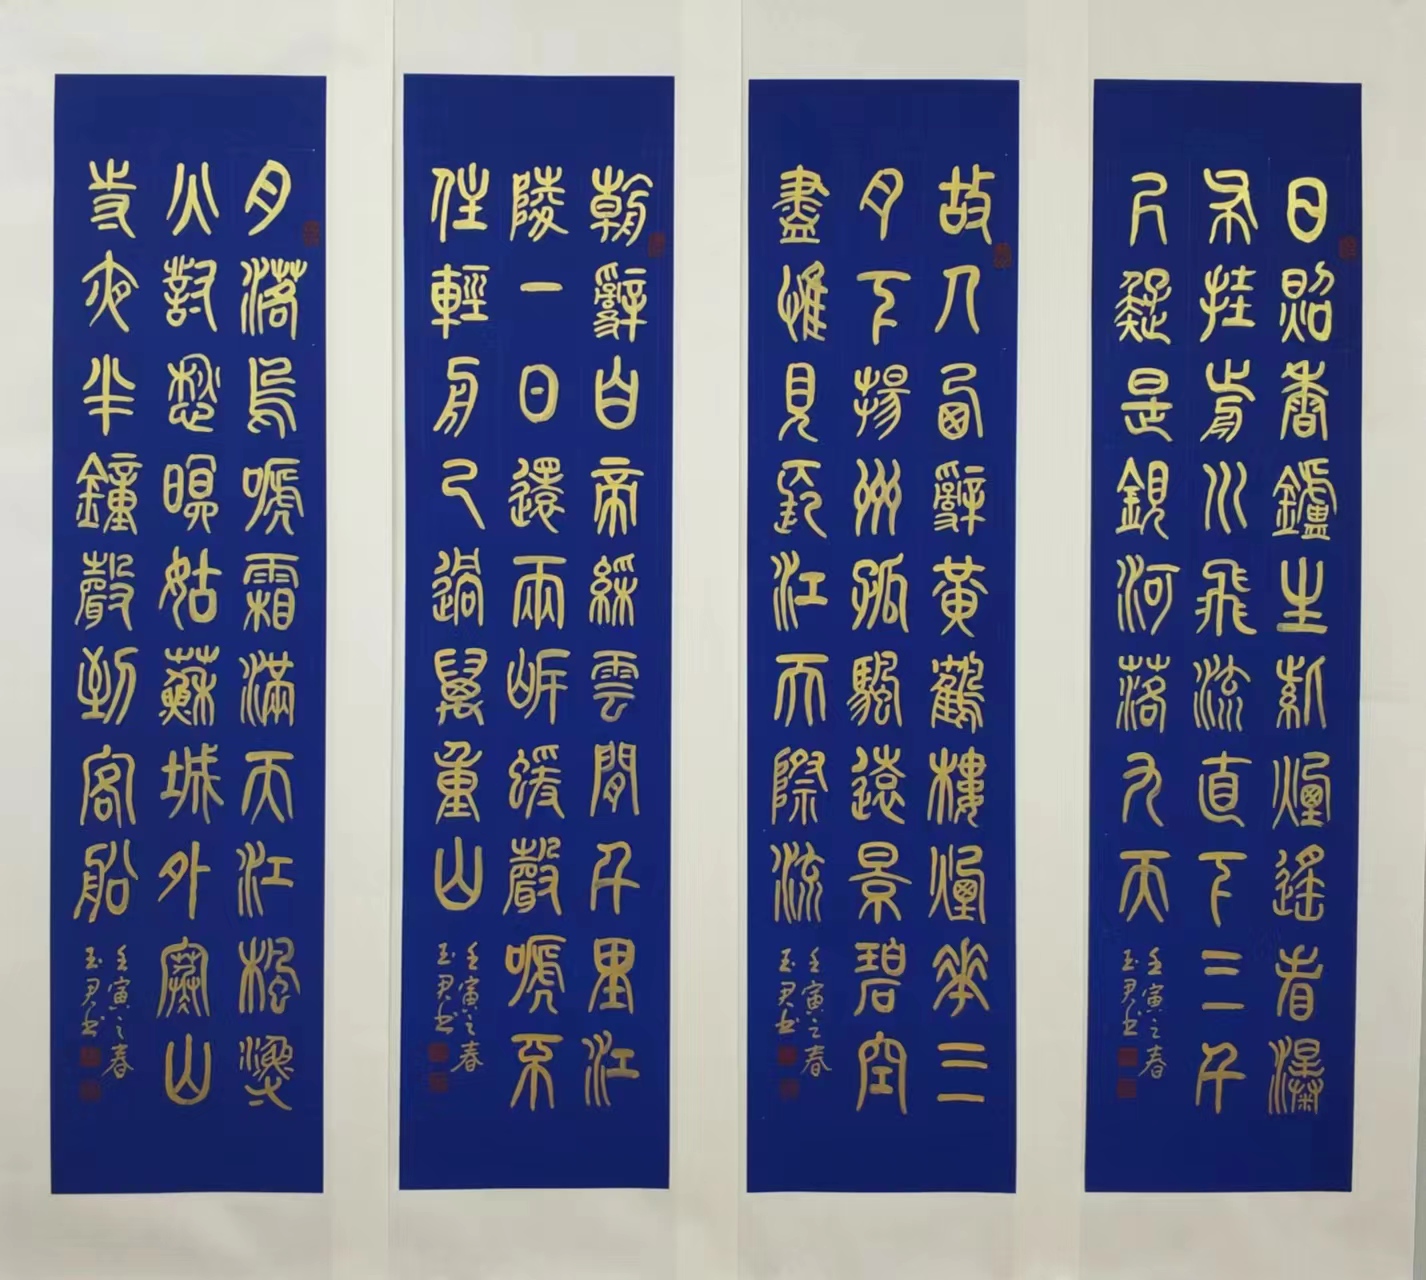 日照香鑪生紫煙遙看瀑
布挂前川飛流直下三千
尺疑是銀河落九天
壬寅之春
玉君书
故人西辭黃鶴樓煙華三
月下揚州孤颿遠景碧空
盡惟見長江天際流
壬寅之春
玉君书
朝辭白帝綵雲間千里江
陵一日還兩岸蝯聲嗁不
住輕舟已過萬重山
壬寅之春
玉君书
月落烏嗁霜滿天江楓漁
火對愁瞑姑蘇城外寒山
寺夜半鐘聲到客船
壬寅之春
玉君书